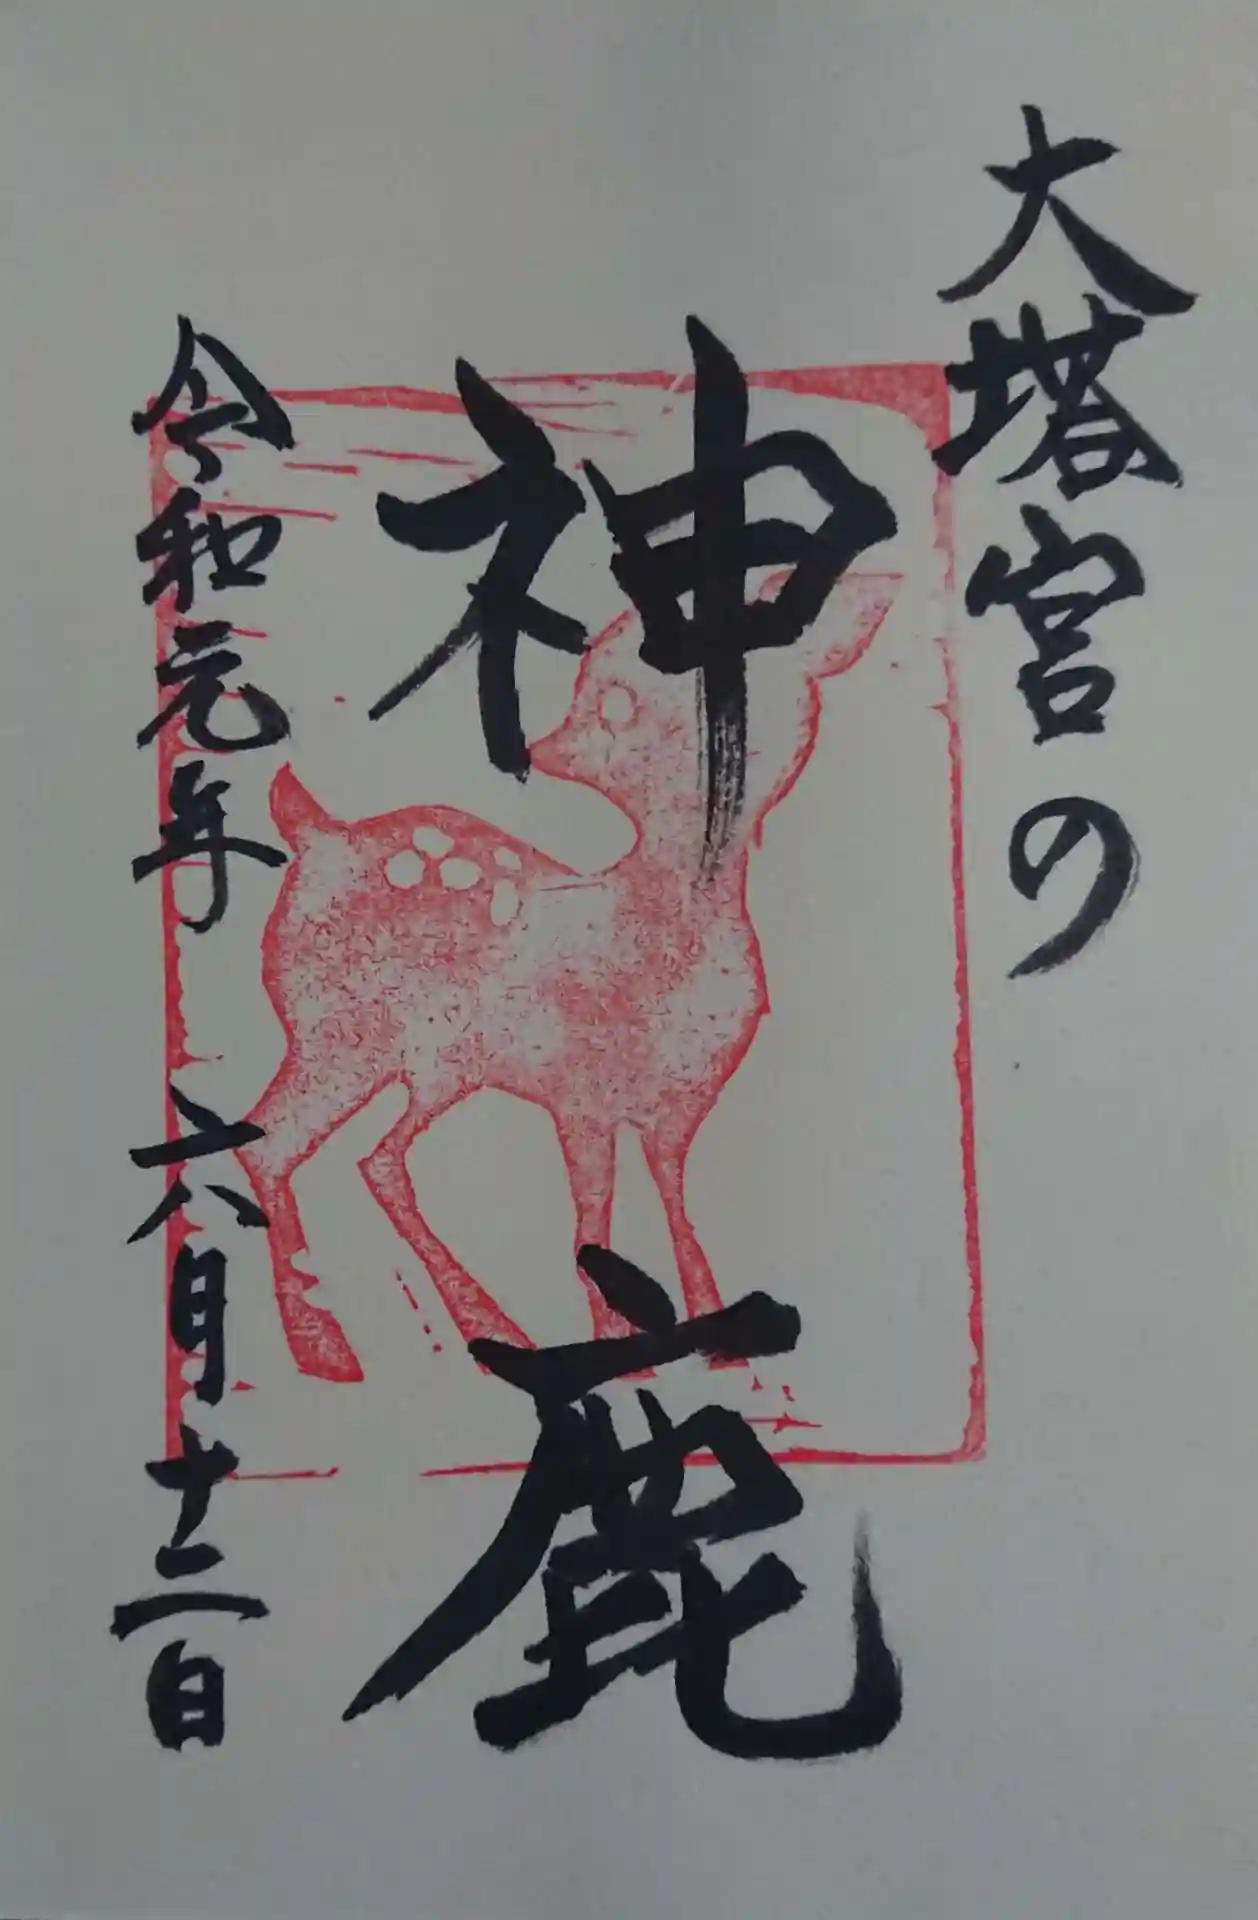 大塔宮の
神鹿
令和元年 六月十二日